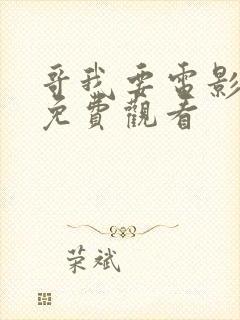 哥我要电影
免費觀看
荣斌